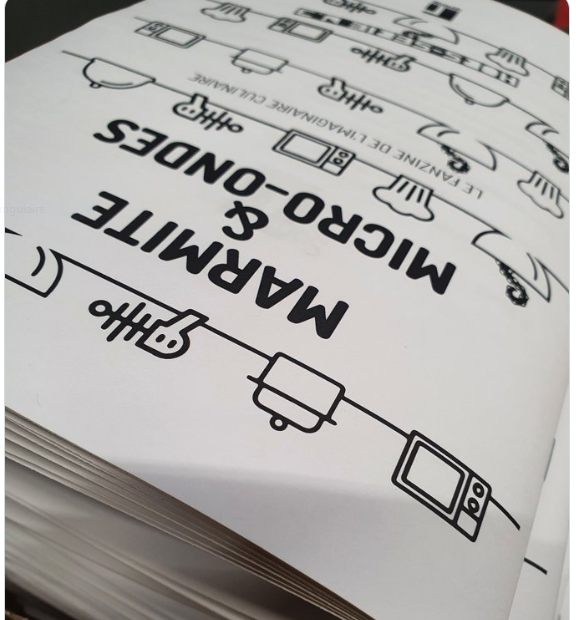 MARMITE
&
MICRO-ONDES
LE FANZINE DE L'IMAGINAIRE CULINAIRE